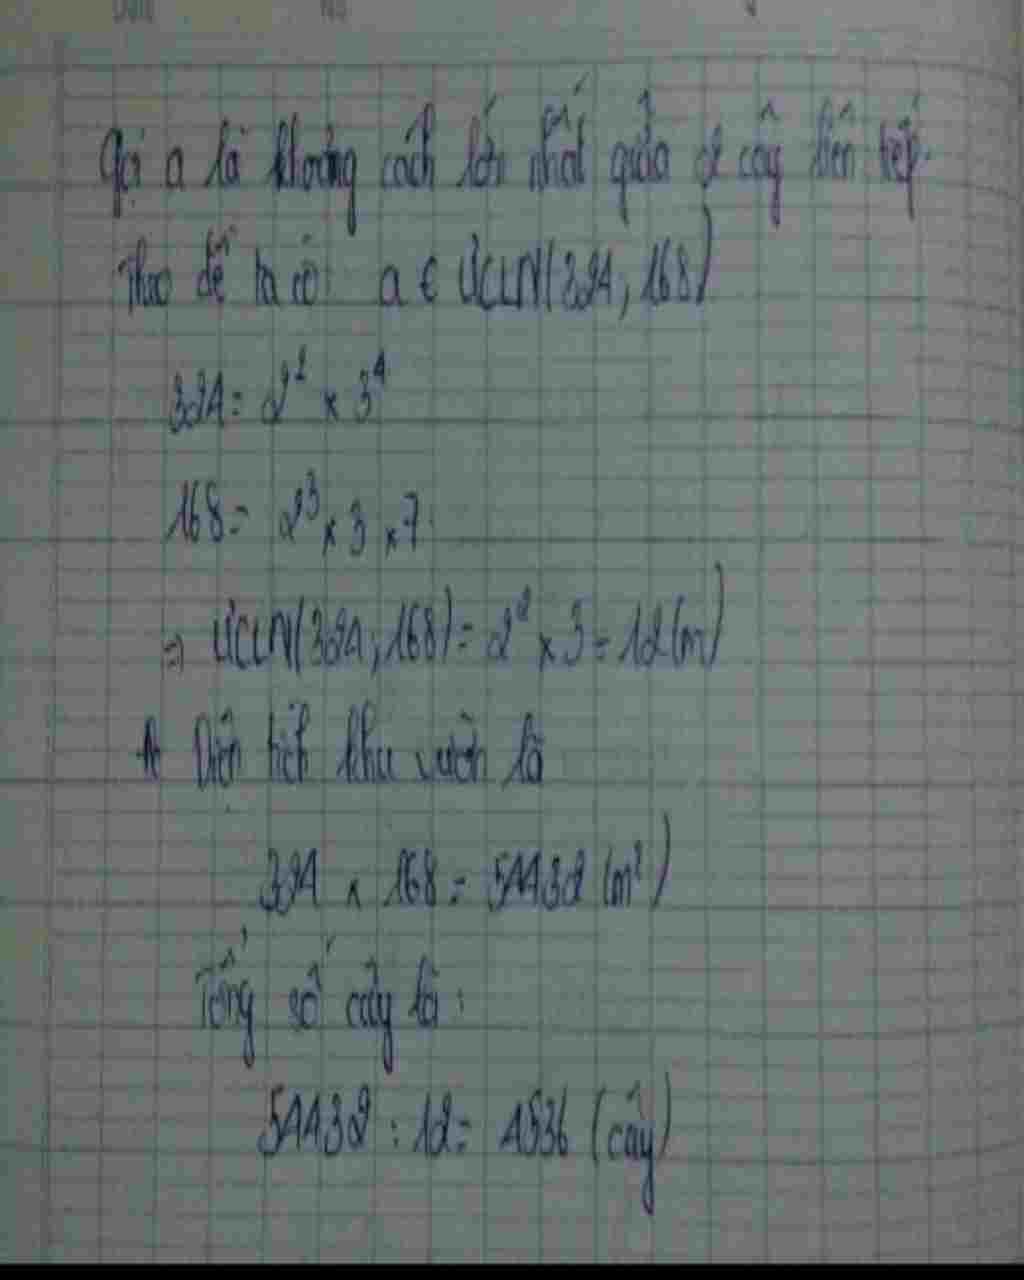 Gọi a là khoảng cách lớn nhất giữa 2 cây liên tiếp.
Theo đề ta có: a € ƯCLN(324, 168)
324 = 2² × 3⁴
168 = 2³ × 3 × 7
=> ƯCLN(324, 168) = 2² × 3 = 12 (m)
Diện tích khu vườn là
324 × 168 = 54432 (m²)
Tổng số cây là:
54432 : 12 = 4536 (cây)